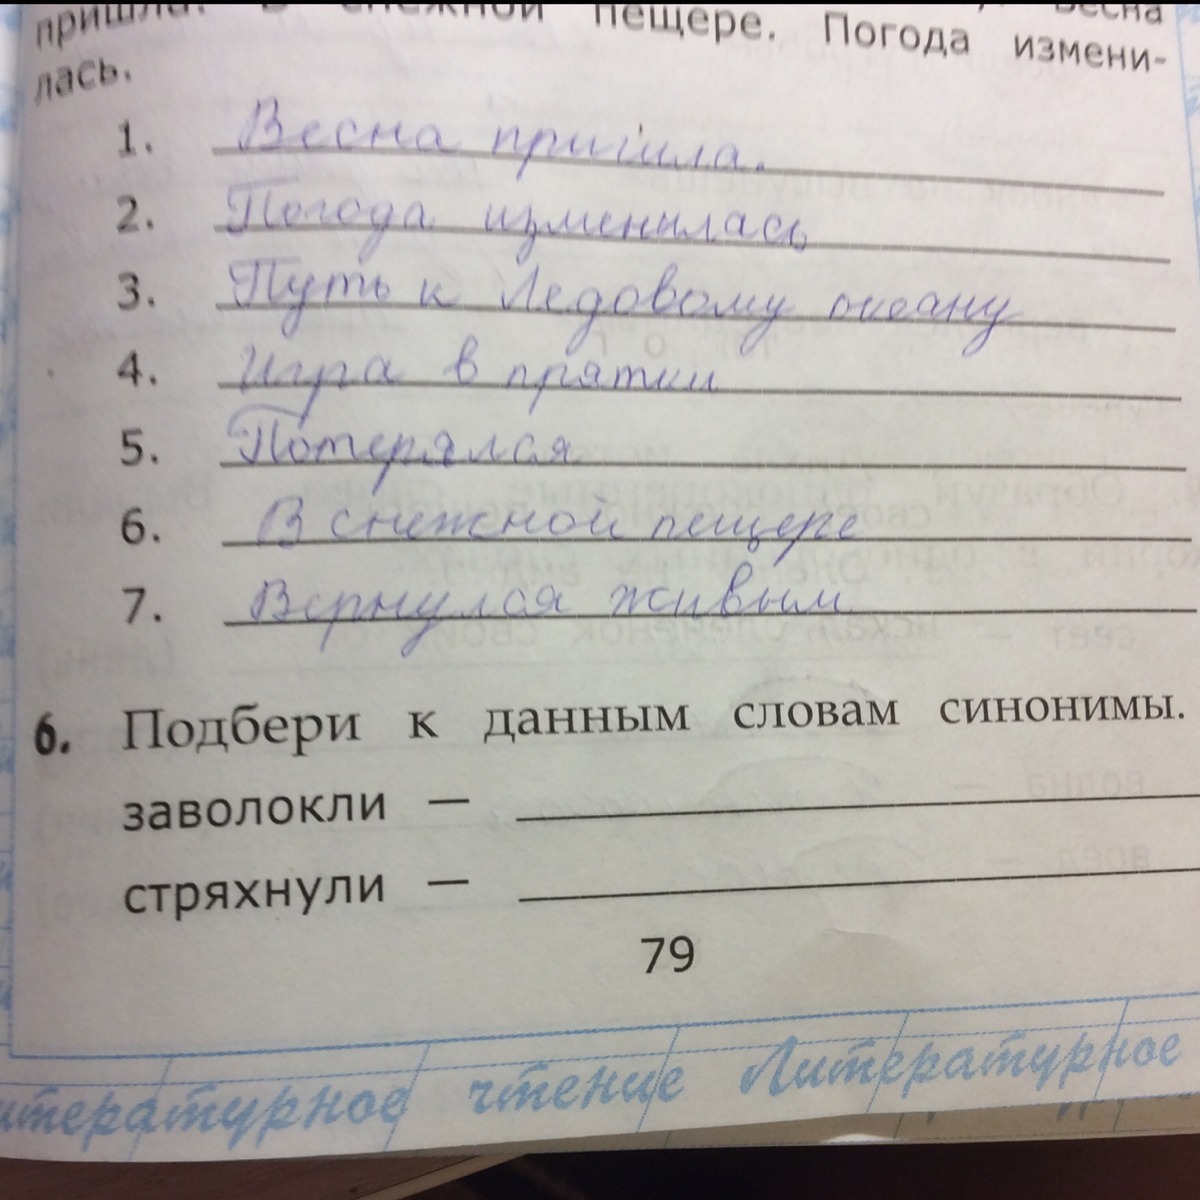 пришла. В снежной пещере. Погода измени-
лась.
1. Весна пришла.
2. Погода изменилась
3. Путь к Ледовому океану
4. Игра в прятки
5. Потерялся
6. В снежной пещере
7. Вернулся живым
6. Подбери к данным словам синонимы.
заволокли —
стряхнули —
79
чтение Литературное